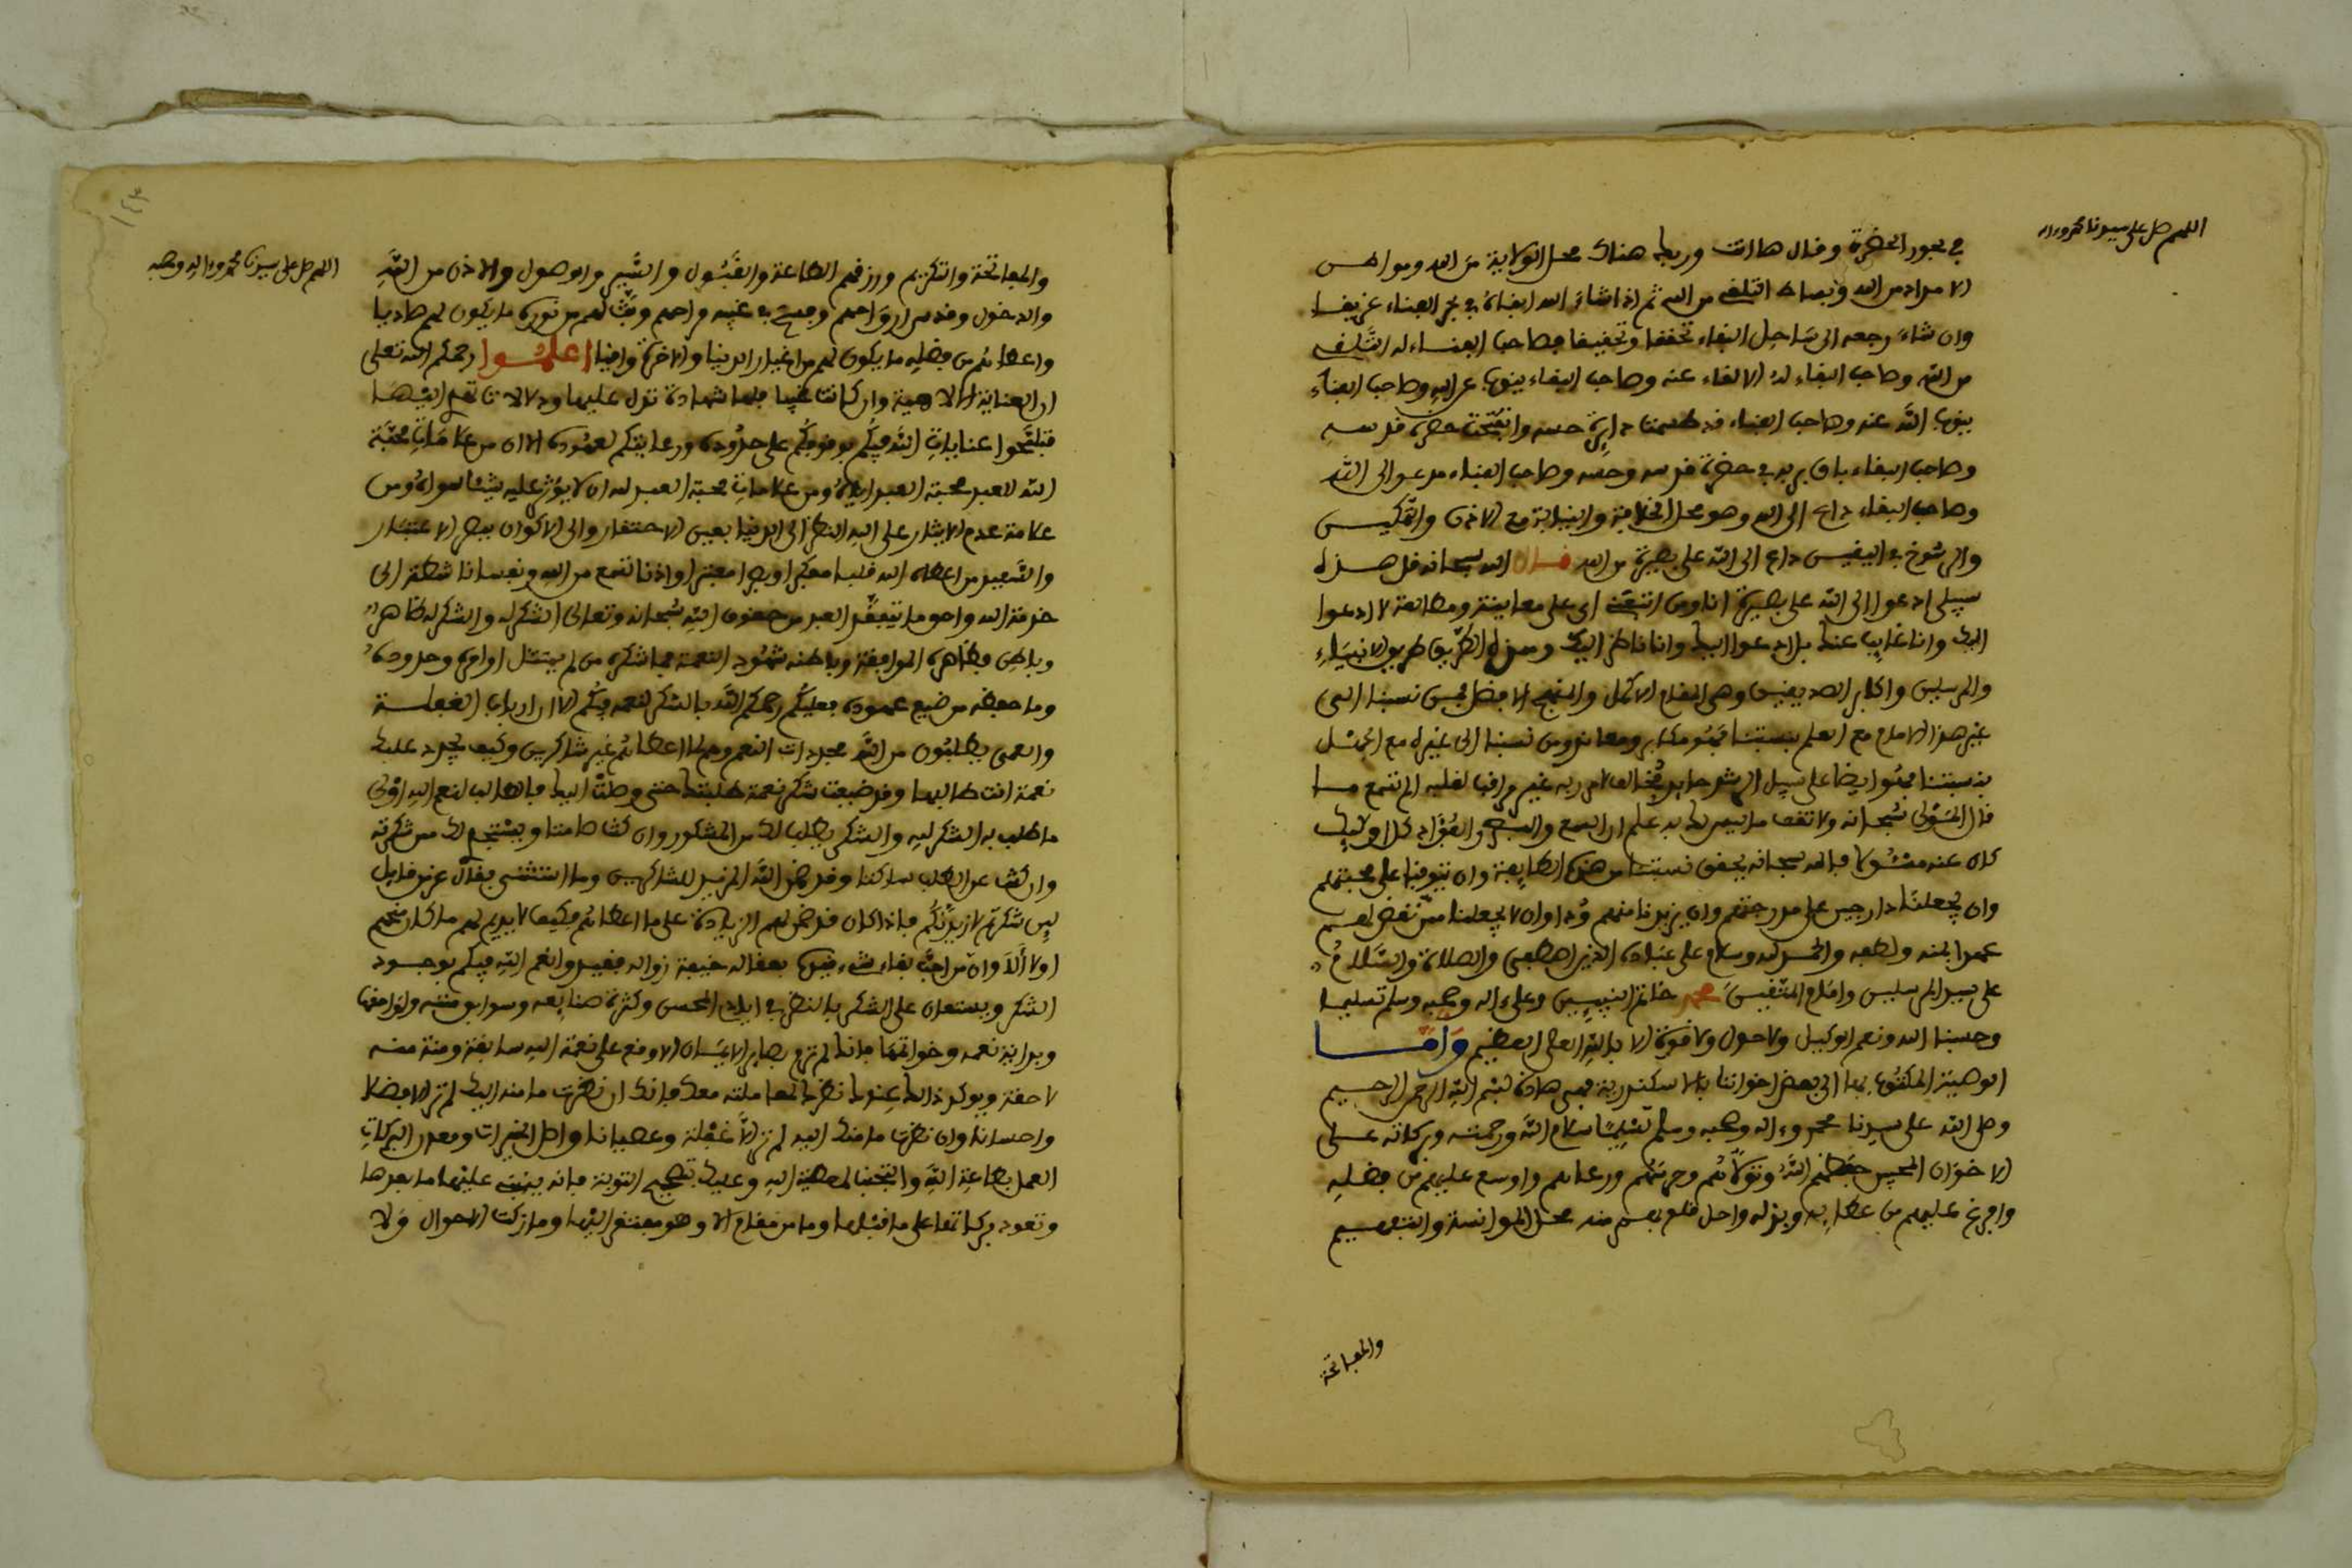 اللهم صل على سيدنا محمد واله
في بحور الحضرة وقال ها انت وربك هناك محل الولاية من الله وهو
الامداد من الله وبساط التلقي من الله ثم اذا شاء الله ابقاه في بحر الفناء غريقا
وان شاء رجعه الى ساحل البقاء تحققا وتخفيفا فصاحب الفناء له التلقي
من الله وصاحب البقاء له الالقاء عنه وصاحب البقاء ينوب عن الله وصاحب الفناء
ينوب الله عنه وصاحب الفناء قد طمست دايرة حسه وانفتحت حضرة قدسه
وصاحب البقاء باق بربه في حضرة قدسه وحسه وصاحب الفناء مدعو الى الله
وصاحب البقاء داع الى الله وهو محل الخلافة والنيابة مع الاذن والتمكين
والرسوخ في اليقين داع الى الله على بصيرة من الله قال الله سبحانه قل هذه
سبيلي ادعوا الى الله على بصيرة انا ومن اتبعني اي على معاينة ومطالعة لا ادعوا
اليك وانا غايب عنك بل ادعوا اليك وانا ناظر اليك وهذه الطريق طريق الانبياء
والمرسلين واكابر الصديقين وهي المقام الاكمل والمنهج الافضل فمن نسبنا الى
غير هذا الامام مع العلم بنسبتنا فهو مكابر ومعاند ومن نسبنا الى غيره مع الجهل
بنسبتنا فهو ايضا على سبيل الرشد حايد مخالف لامر ربه غير مراقب لقلبه الم تسمع ما
قال المولى سبحانه ولا تقف ما ليس لك به علم ان السمع والبصر والفؤاد كل اولئك
كان عنه مسئولا فالله سبحانه يحقق نسبتنا من هذه الطايفة وان يتوفنا على محبتهم
وان يجعلنا دارجين على مدرجتهم وان يزيدنا منهم ودا وان لا يجعلنا ممن نقض لهم
عهدا بمنه ولطفه والحمد لله وسلام على عباده الذين اصطفى والصلاة والسلام
على سيد المرسلين وامام المتقين محمد خاتم النبيين وعلى اله وصحبه وسلم تسليما
وحسبنا الله ونعم الوكيل ولا حول ولا قوة الا بالله العلي العظيم واما
الوصية المكتوب بها الى بعض اخواننا بالاسكندرية فهي هاذه بسم الله الرحمن الرحيم
وصلى الله على سيدنا محمد وءاله وصحبه وسلم تسليما سلام الله ورحمته وبركاته على
الاخوان المحبين حفظهم الله وتولاهم وحرسهم ورعاهم واوسع عليهم من فضله
وافرغ عليهم من عطايه وبذله واحل قلوبهم منه محل الموانسة والتفهيم
والمفاتحة
١٤٣
اللهم صل على سيدنا محمد واله وصحبه
والمفاتحة والتكريم ورزقهم الطاعة والقبول والسير والوصول والاذن من الله
والدخول وقدس ارواحهم وجمع في غيبه افراحهم وبث لهم من نوره ما يكون لهم هاديا
واعطاهم من فضله ما يكون لهم من اغيار الدنيا والاخرة واقيا اعلموا رحمكم الله تعالى
ان العناية الالاهية وان كانت غيبا فلها شهادة تدل عليها ودلالات تهدي اليها
فتلمحوا عنايات الله فيكم بوقوفكم على حدوده ورعايتكم لعهوده الا ان من علامات محبة
الله للعبد محبة العبد اياه ومن علامات محبة العبد له ان لا يؤثر عليه شيئا سواه ومن
علامة عدم الايثار على الله النظر الى الدنيا بعين الاحتقار والى الاكوان ببصر الاعتبار
والسعيد من اعطاه الله قلبا مفكرا وبصرا معتبرا واذنا تسمع من الله ونفسا ناشطة الى
خدمة الله واحق ما يتفقد العبد من حقوق الله سبحانه وتعالى الشكر له والشكر له ظاهر
وباطن فظاهره الموافقة وباطنه شهود النعمة فما شكره من لم يمتثل اوامره وحدوده
وما حفظه من ضيع عهوده فعليكم رحمكم الله بالشكر لنعمه فيكم الا ان ارباب الغفلة
والعمى يطلبون من الله مجددات النعم وهم لما اعطاهم غير شاكرين وكيف تجدد عليك
نعمة انت طالبها وقد ضيعت شكر نعمة طلبتك حتى وصلت اليك فاطالب لنعم الله اولى
ما طلب به الشكر لله والشكر يطلب لك من المشكور وان كنت صامتا ويستنجح لك ممن شكرته
وان كنت عن الطلب ساكتا وقد ضمن الله المزيد للشاكرين وما استثنى فقال عز من قايل
لين شكرتم لازيدنكم فاذا كان قد ضمن لهم الزيادة على ما اعطاهم فكيف لا يديم لهم ما كان منحهم
اولا الا وان من احب بقاء شيء فيده بعقاله خيفة زواله فقيدوا نعم الله فيكم بوجود
الشكر ويستعان على الشكر بالنظر في ايادي المحسن وكثرة صنايعه وسوابق مننه ولواحقها
وبداية نعمه وخواتمها فانه لم ترم بصاير الانسان الا وقع على نعمة الله سابقة ومنة منه
لاحقة ويوكد ذالك عندك نظرك لما عاملته معك فانك ان نظرت ما منه اليك لم تر الا فضلا
واحسانا وان نظرت ما منك اليه لم تر الا غفلة وعصيانا واصل الخيرات ومعدن البركات
العمل بطاعة الله والتجنب لمعصية الله وعليك بتصحيح التوبة فانه ينبني عليها ما بعدها
وتعود بركاتها على ما قبلها وما من مقام الا وهو مفتقر اليها وما زكت الاحوال ولا